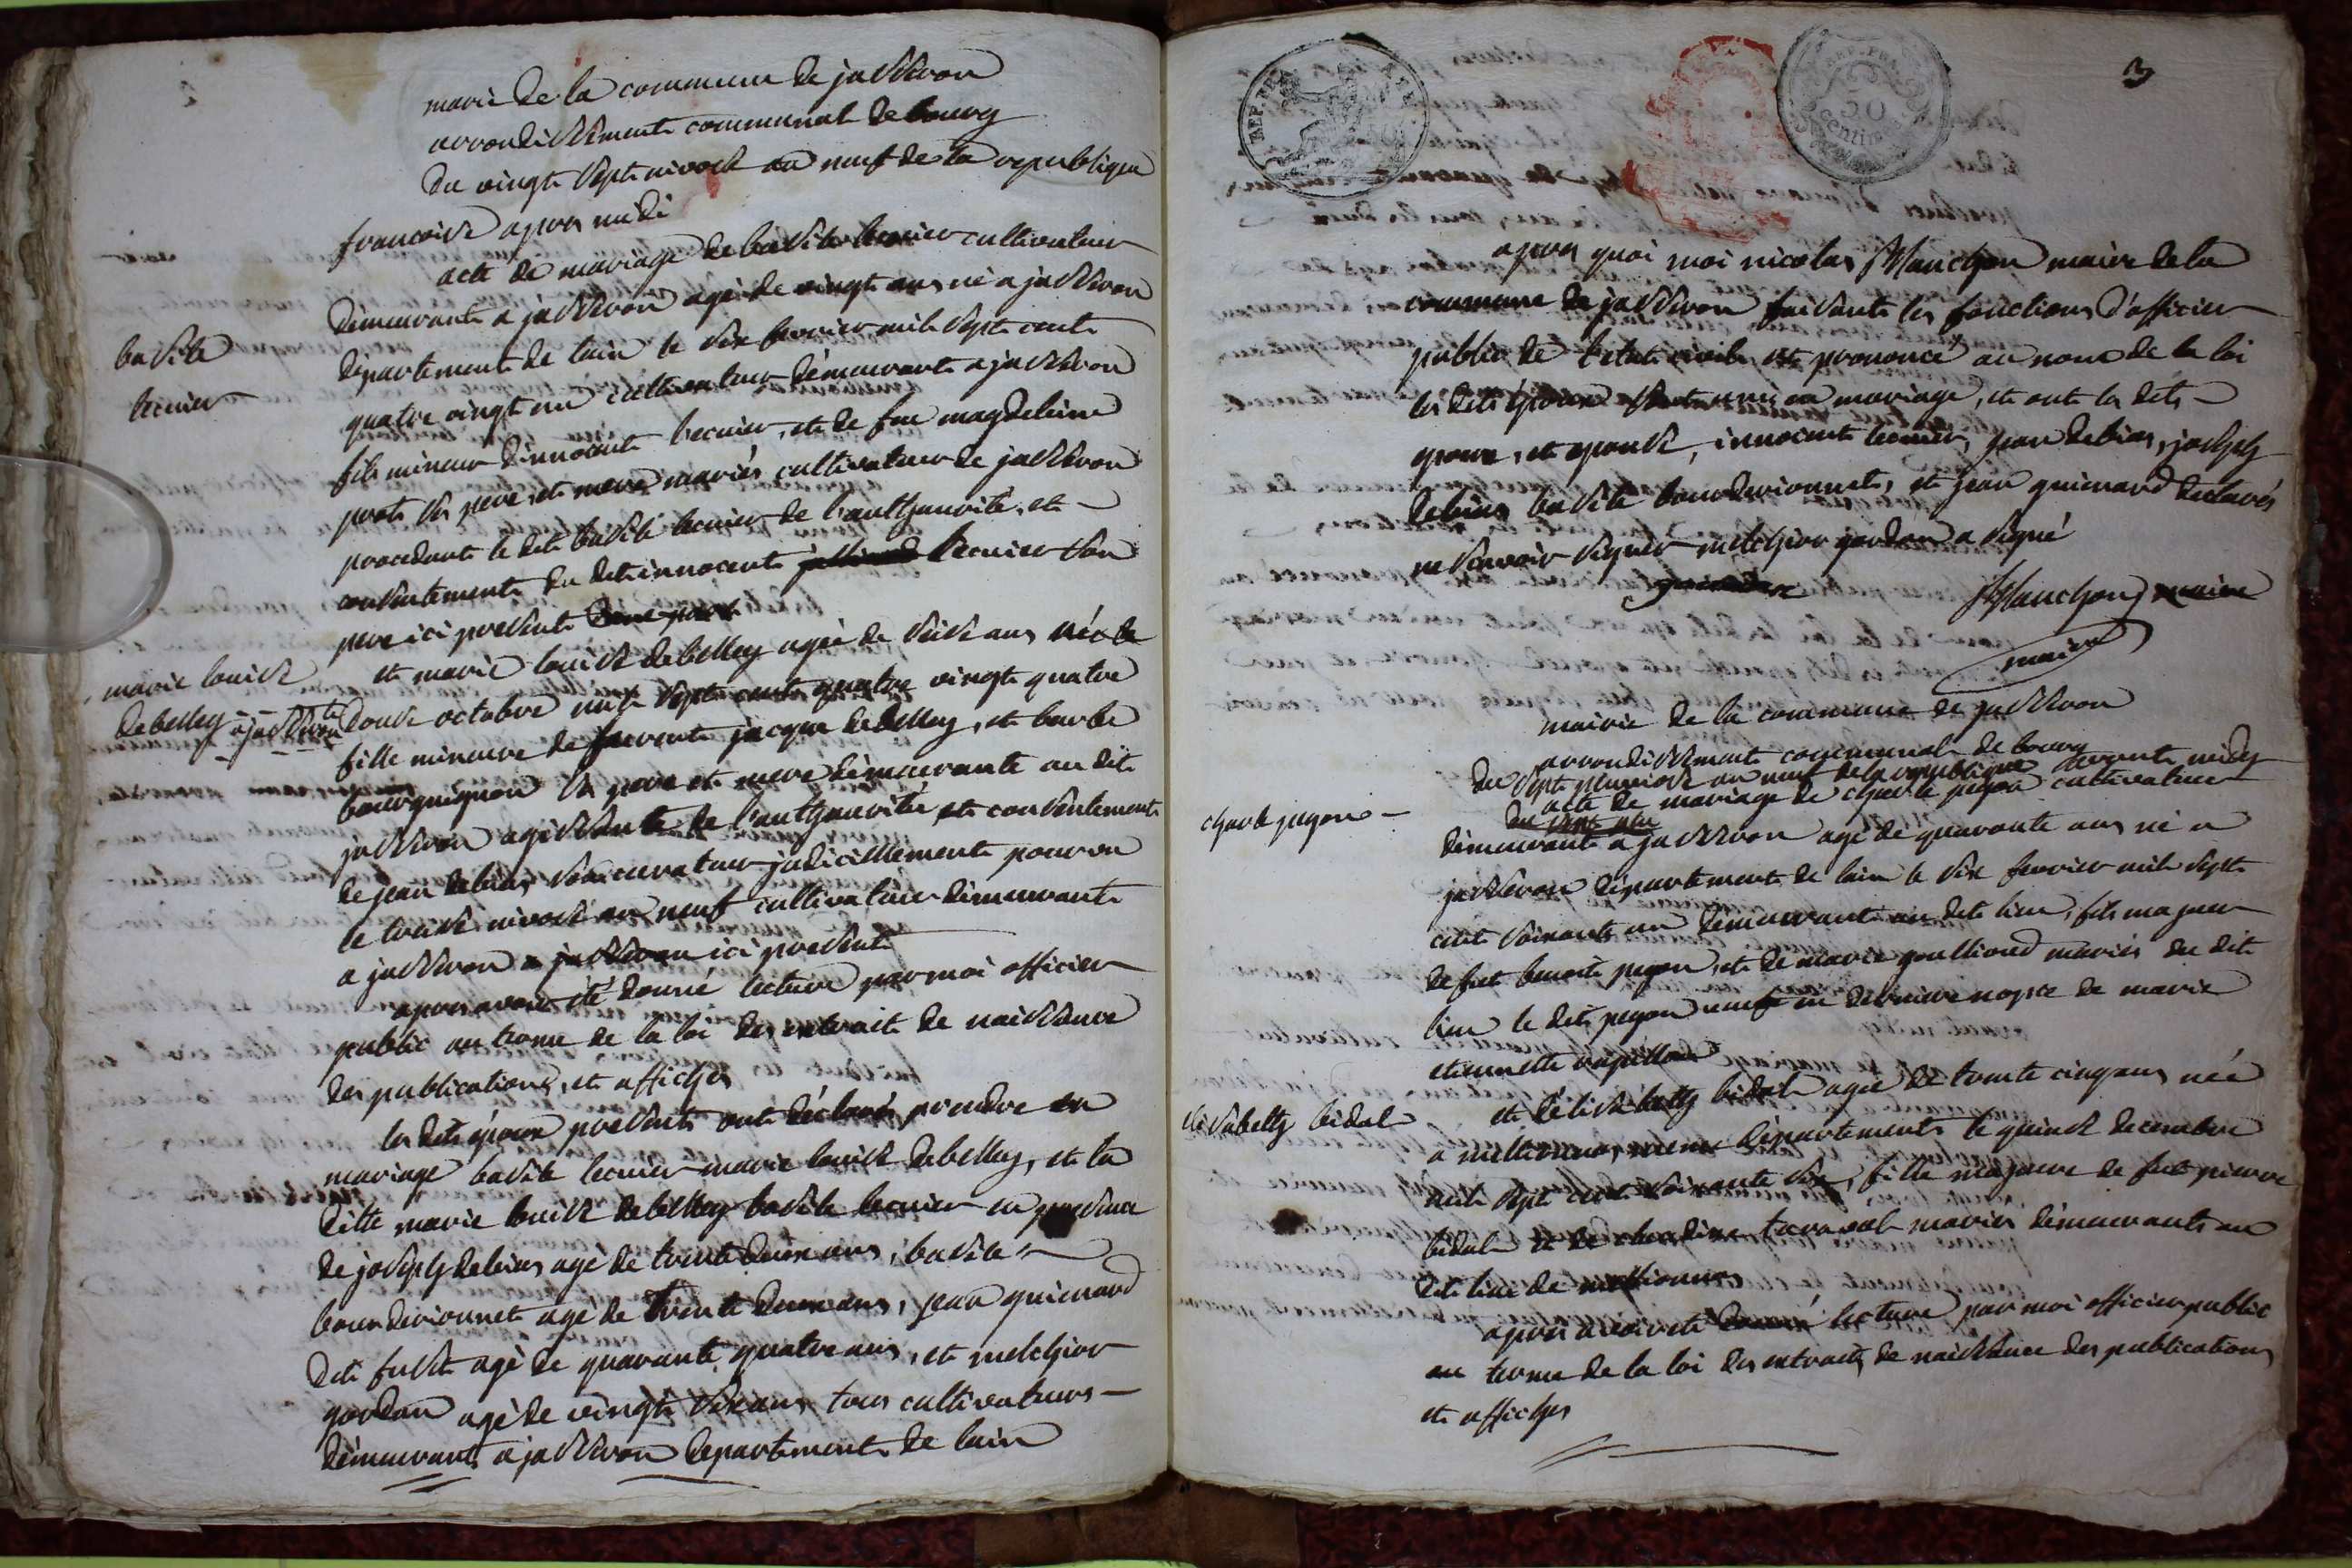 marie de la commune de jasseron
arrondissement communal de bourg
du vingt sept nivose an neuf de la republique
francoise apres midi
acte de mariage de basile lecuier cultivateur
demeurant a jasseron agé de vingt ans né a jasseron
departement de lain le six fevrier mil sept cent
quatre vingt un cultivateur demeurant a jasseron
fils mineur dinnocent lecuier, et de feu magdeleine
ses pere et mere mariés cultivateur de jasseron
procedant le dit basile lecuier de l'authaurité, et
consentement du dit innocent lecuier son
pere ici present
basile
lecuier
et marie louise debelley agée de seise ans née le
marie louise
debelley a jasseron
douse octobre mil sept cent quatre vingt quatre
fille mineure de jacque debelley, et barbe
bourguignon ses pere et mere demeurant au dit
jasseron agissante de l'authaurité et consentement
de jean debias son curateur judiciellement pourvu
le treise nivose an neuf cultivateur demeurant
a jasseron a jasseron ici present
apres avoir été donné lecture par moi officier
public au terme de la loi des extrait de naissance
des publications, et affiches
les dits époux presents ont déclarés prendre en
mariage basile lecuier marie louise debelley, et la
ditte marie louise debelley basile lecuier en presence
de joseph debias agé de trente deux ans, basile
bourderionnet agé de trente deux ans, jean guinard
dit agé de quarante quatre ans, et melchior
gordan agé de vingt six ans tous cultivateurs
demeurants a jasseron departement de lain
3
REP. FRA.
REP. FRA.
50
centimes
apres quoi moi nicolas Manchon maire de la
commune de jasseron faisant les fonctions d'officier
public de l'etat civile est prononcé au nom de la loi
les dits époux sont unis en mariage, et ont les dits
epoux, et epouse, innocent lecuier, jean debias, joseph
debias basile bourderionnet, et jean guinard declarés
ne scavoir signer melchior gordan a signé
Manchon maire
maire
mairie de la commune de jasseron
arrondissement communal de bourg
du sept pluviose an neuf de la republique avant midy
acte de mariage de charle pegon cultivateur
charle pegon
demeurant a jasseron agé de quarante ans né a
jasseron departement de lain le six fevrier mil sept
cent soixante un demeurant au dit lieu, fils majeur
de feu benoit pegon, et de marie goullioud mariés du dit
lieu le dit pegon en derniere nopce de marie
etiennette
elisabeth bidal
et élisebeth bidal agée de trente cinq ans née
a meillonnas meme departement le quinse decembre
mil sept cent soixante six, fille majeure de feu pierre
bidal et de claudine taravel mariés demeurants au
dit lieu de meillonnas
apres avoir été donné lecture par moi officier public
au terme de la loi des extraits de naissance des publications
et affiches